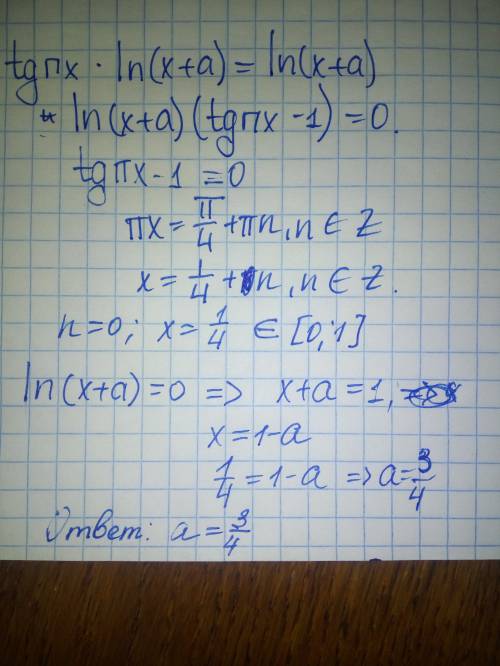 tgπx · ln(x+a) = ln(x+a)
ln(x+a)(tgπx -1) = 0.
tgπx-1 = 0
πx = π/4 + πn, n ∈ Z
x = 1/4 + n, n ∈ Z.
n=0; x = 1/4 ∈ [0;1]
ln(x+a)=0 => x+a=1,
x=1-a
1/4 = 1-a => a=3/4
Ответ: a = 3/4